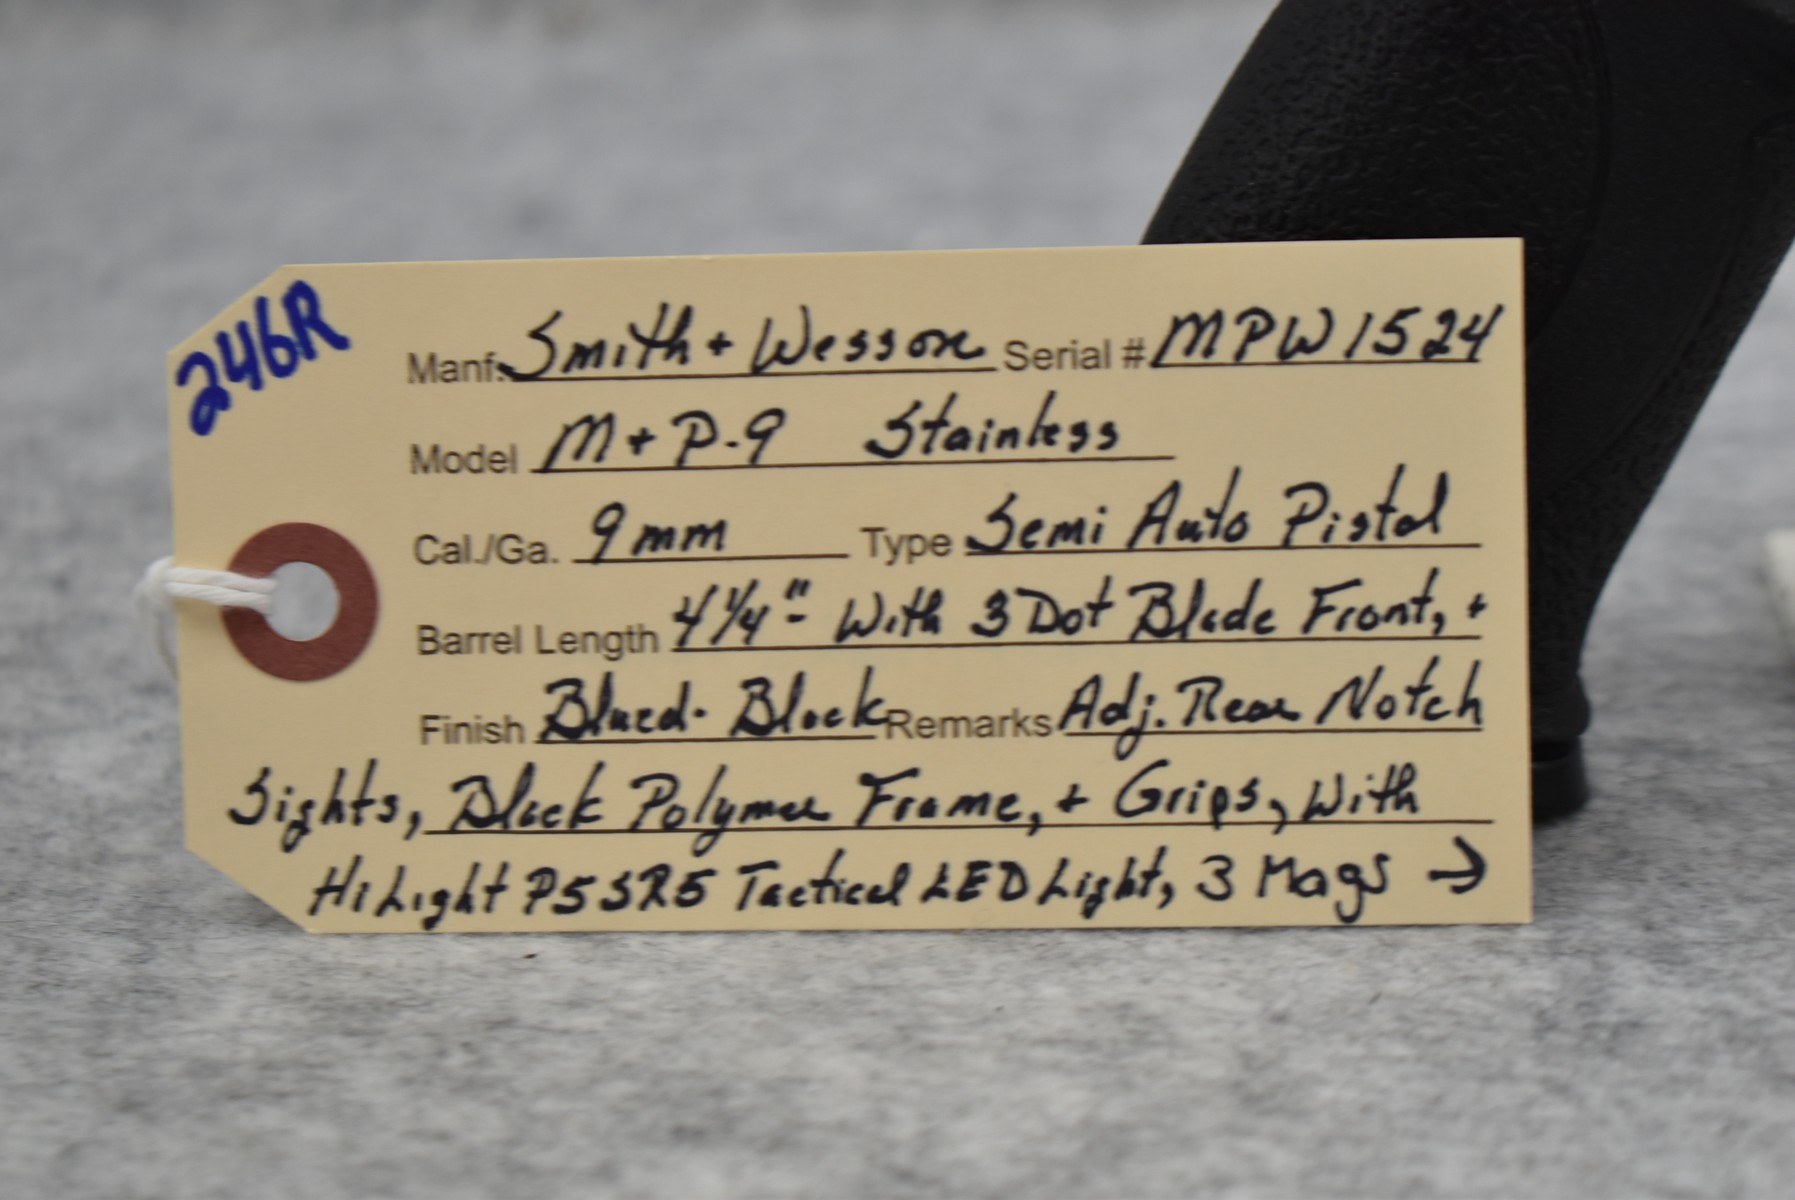 246R
Manf. Smith + Wesson Serial # MPW1524
Model M+P-9 Stainless
Cal./Ga. 9mm Type Semi Auto Pistol
Barrel Length 4 1/4" - With 3 Dot Blade Front, +
Finish Blued - Black Remarks Adj. Rear Notch
Sights, Black Polymer Frame, + Grips, With
HiLight P5SR5 Tactical LED Light, 3 Mags →